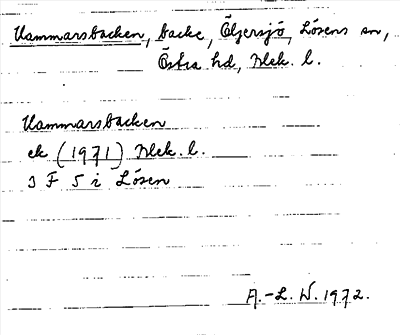 Kammarsbacken, backe, Elgersjö, Lösens sn,
Östra hd, Blek. l.
Kammarsbacken
ek (1971) Blek. l.
3 F 5 i Lösen
A.-L. W. 1972.